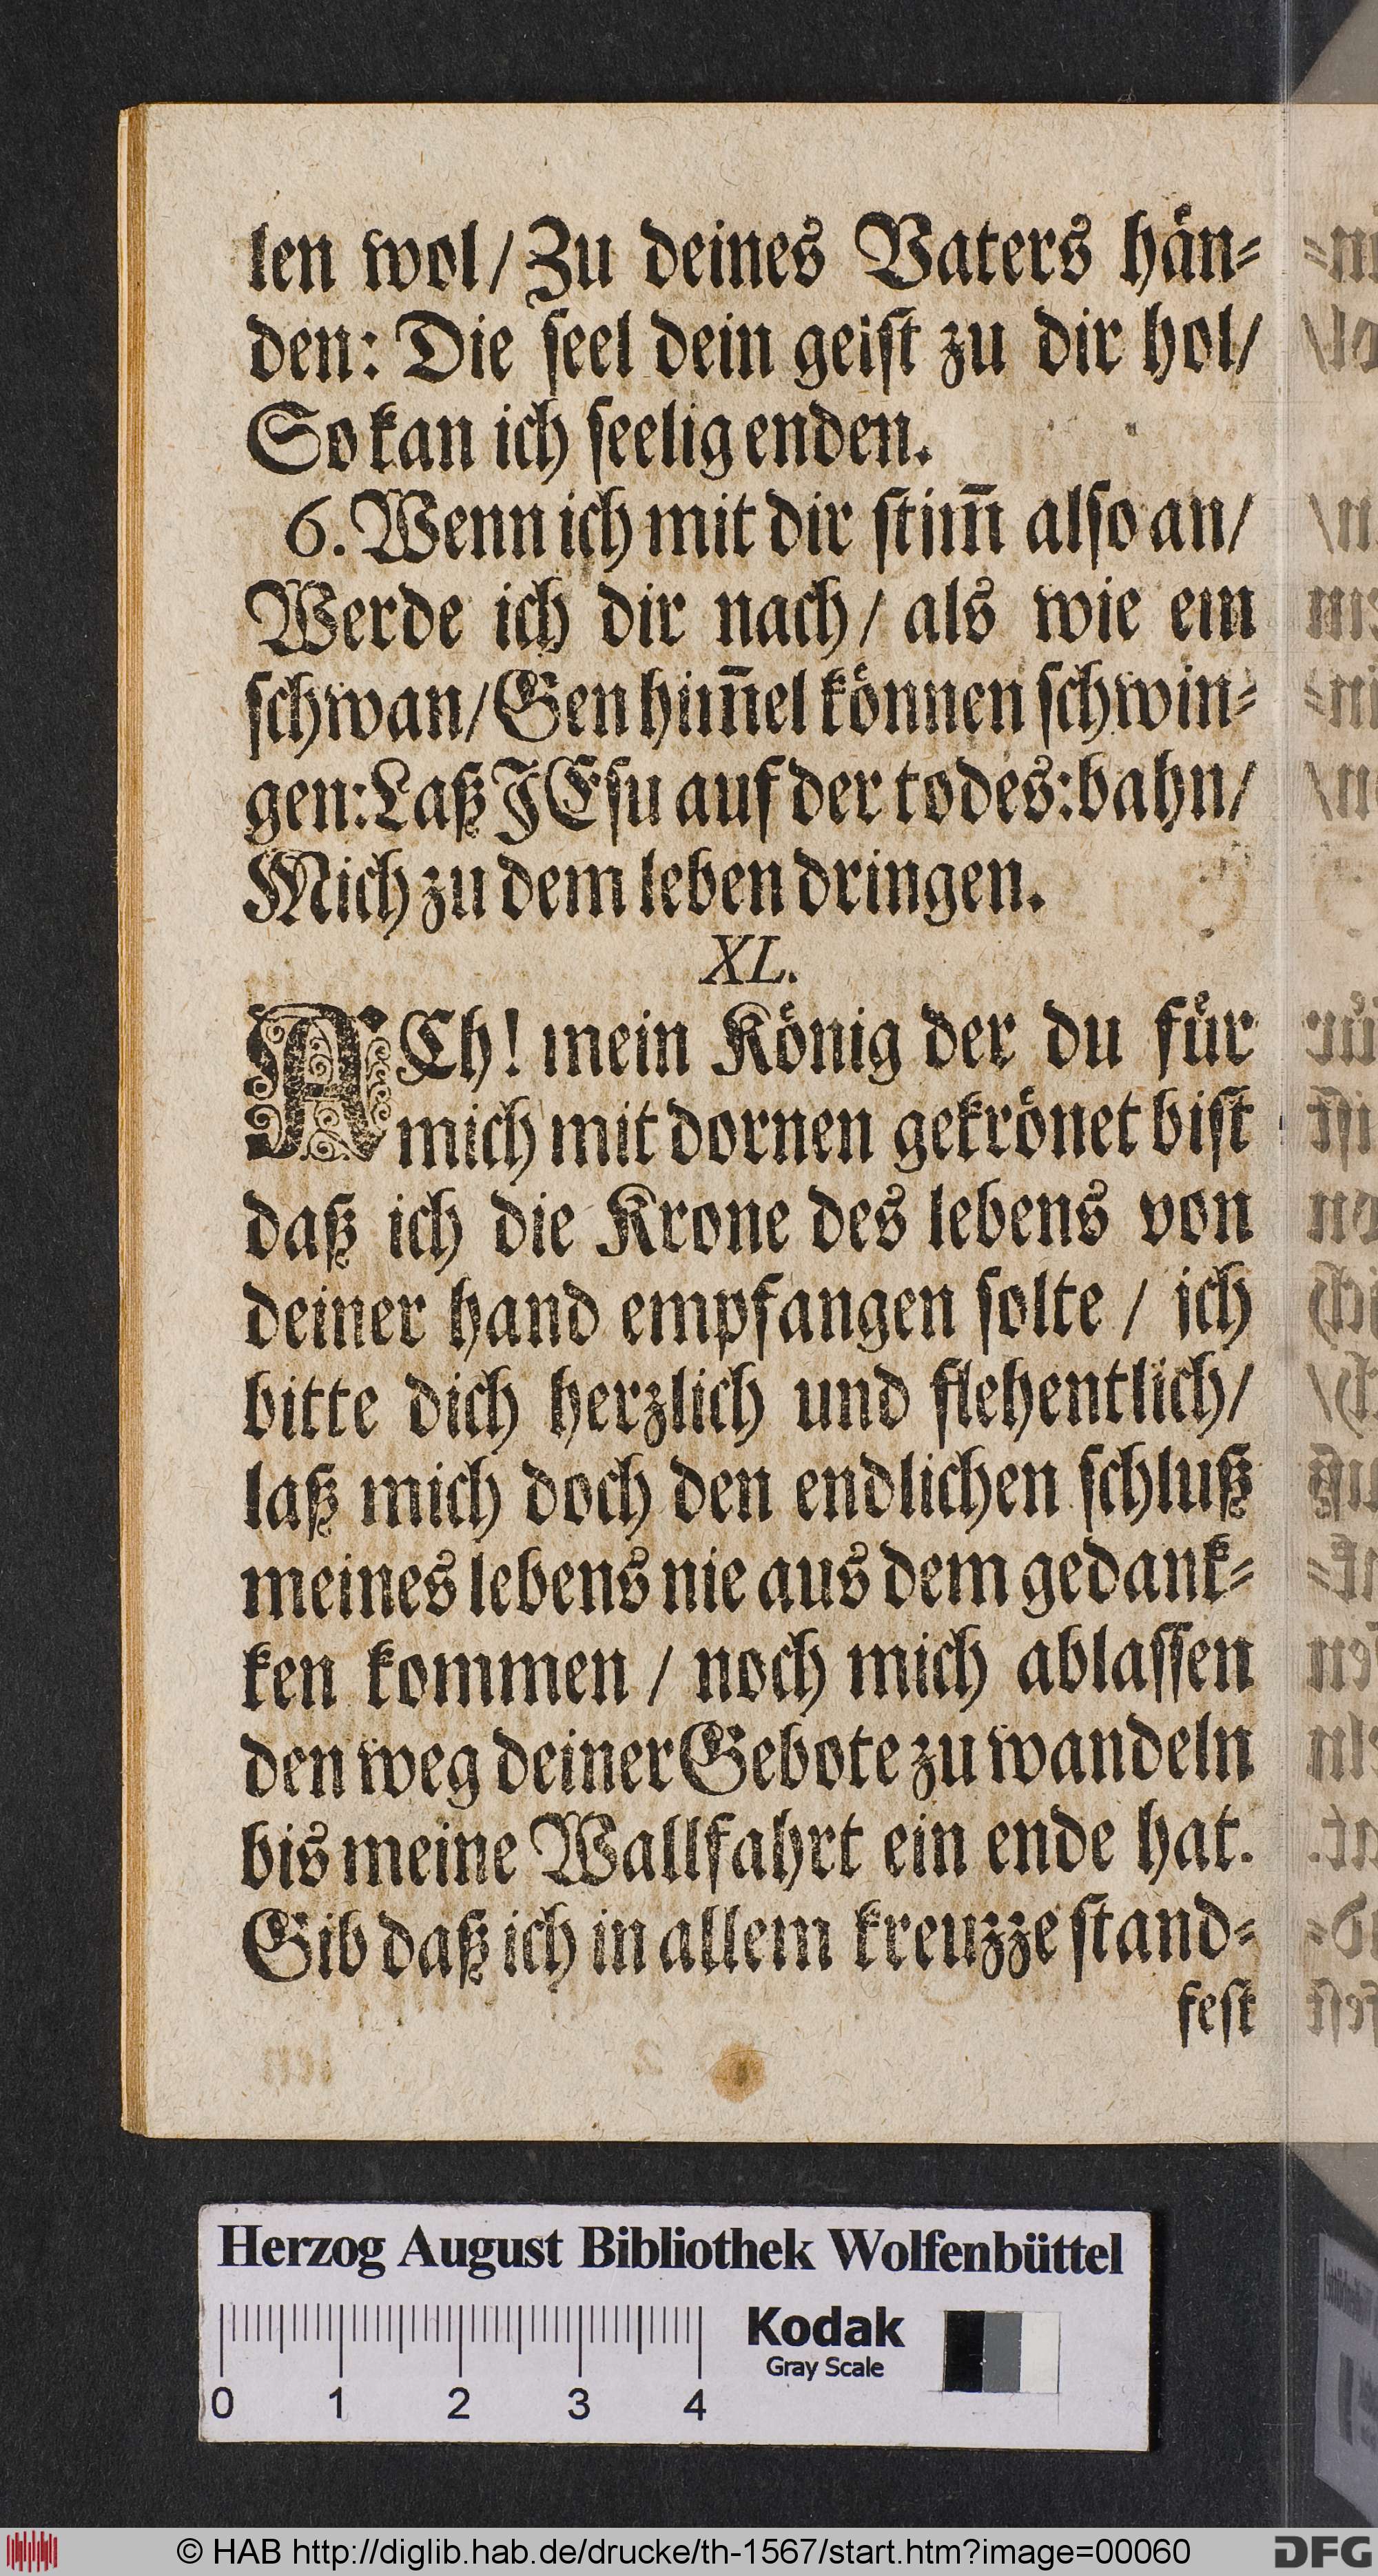 len wol/ Zu deines Vaters hän⸗
den: Die ſeel dein geiſt zu dir hol/
So kan ich ſeelig enden.
6. Wenn ich mit dir ſtim̄ alſo an/
Werde ich dir nach/ als wie ein
ſchwan/ Gen him̄el können ſchwin⸗
gen: Laß JEſu auf der todes:bahn/
Mich zu dem leben dringen.
XL.
ACh! mein König der du für
mich mit dornen gekrönet biſt
daß ich die Krone des lebens von
deiner hand empfangen ſolte / ich
bitte dich herzlich und flehentlich/
laß mich doch den endlichen ſchluß
meines lebens nie aus dem gedank⸗
ken kommen / noch mich ablaſſen
den weg deiner Gebote zu wandeln
bis meine Wallfahrt ein ende hat.
Gib daß ich in allem kreuzze ſtand⸗
feſt
Herzog August Bibliothek Wolfenbüttel
Kodak
Gray Scale
0 1 2 3 4
© HAB http://diglib.hab.de/drucke/th-1567/start.htm?image=00060
DFG